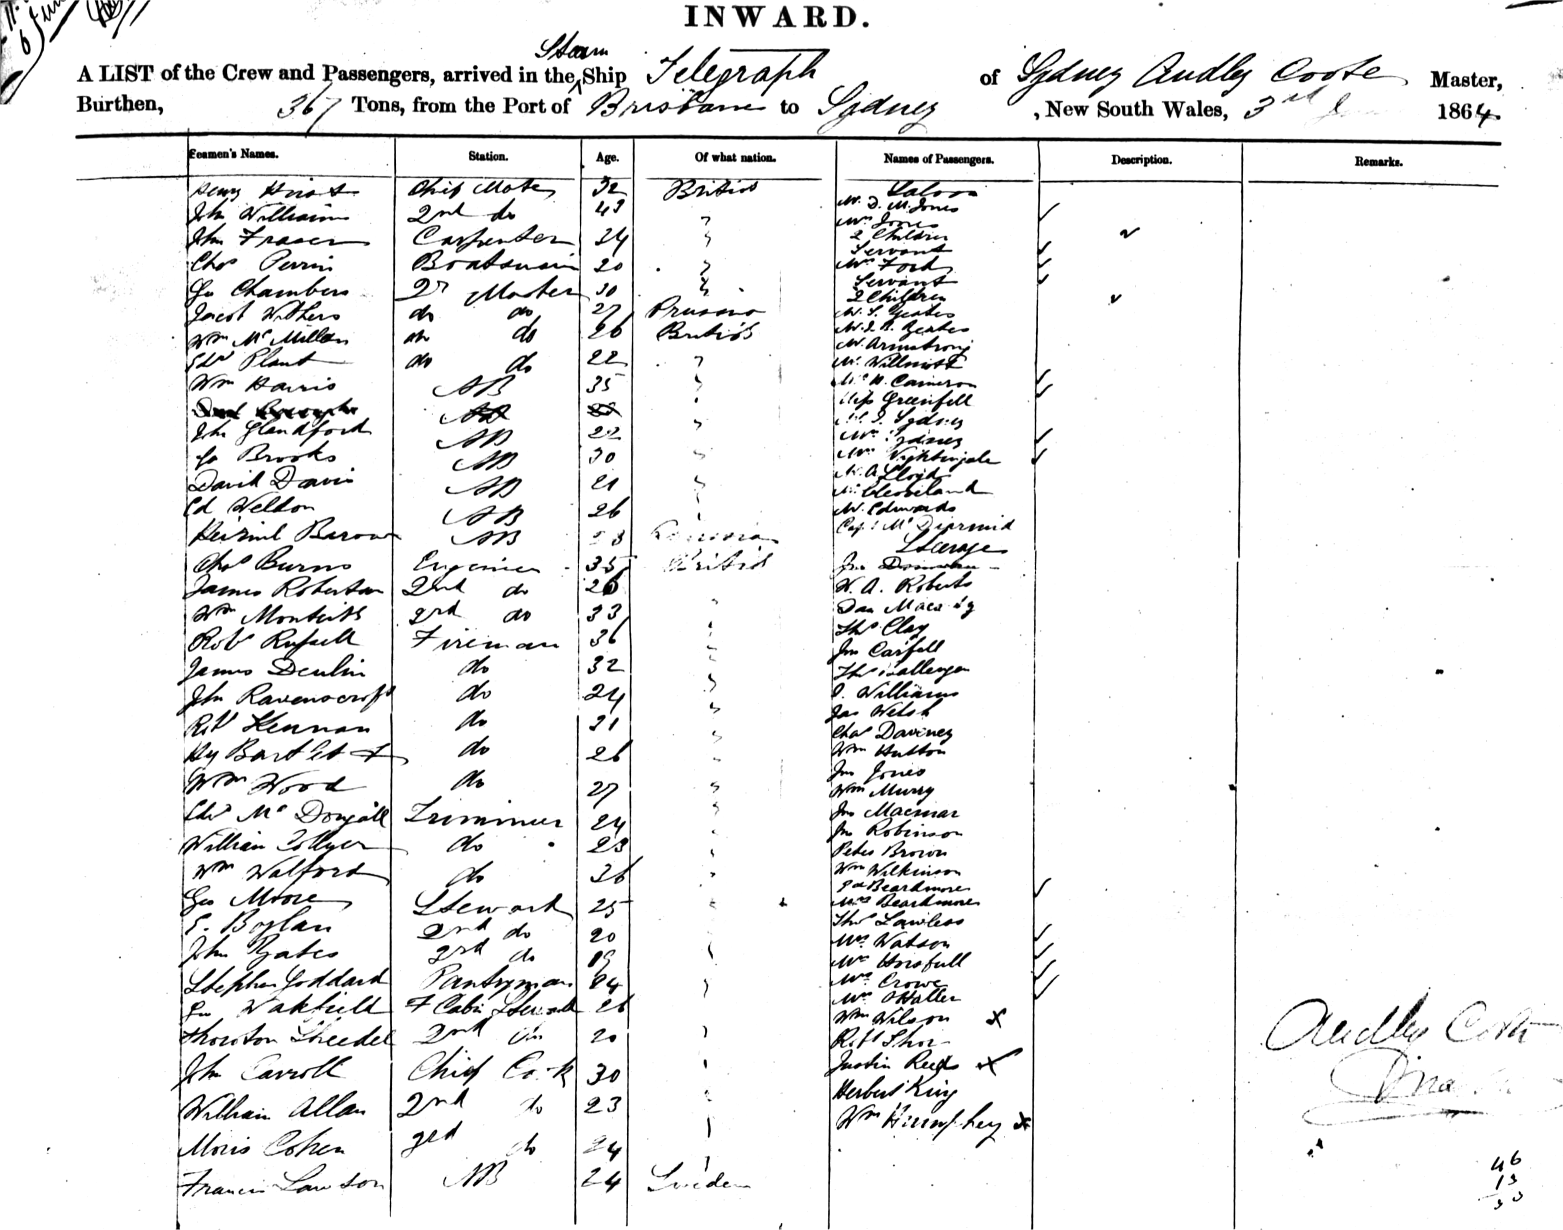 INWARD.
Steam
A LIST of the Crew and Passengers, arrived in the Ship Telegraph of Sydney Audley Coote Master,
Burthen, 367 Tons, from the Port of Brisbane to Sydney, New South Wales, 3rd 1864
Seamen's Names. Station. Age. Of what nation. Names of Passengers. Description. Remarks.
Henry Chief Mate 32 British
Jhn Williams 2nd do 43 "
Jhn Fraser Carpenter 24 "
Chas Perrin Boatswain 20 "
Geo Chambers Qr Master 30 "
Jacob Withers do do 27 Prussia
Wm McMillan do do 26 British
Edwd Plant do do 22 "
Wm Harris AB 35 "
AB
Jhn Glandford AB 22 "
Geo Brooks AB 30 "
David Davis AB 21 "
Ed Weldon AB 26 "
Barow AB
Chas Burns Engineer 35 British
James Robertson 2nd do 26 "
Wm Monteith 3rd do 33 "
Robt Russell Fireman 36 "
James Denlin do 32 "
Jhn Ravenscroft do 24 "
Robt do 21 "
Hy Bartlett do 26 "
Wm Wood do 27 "
Edwd McDougall Trimmer 24 "
William Collyer do 23 "
Wm Walford do 26 "
Geo Moore Steward 25 "
E. Boylan 2nd do 20 "
Jhn Yates 3rd do 19 "
Stephen Goddard Pantryman 24 "
Geo Wakefield F Cabin Steward 26
Thornton 2nd do 20 "
Jhn Carroll Chief Cook 30 "
William Allan 2nd do 23 "
Moris Cohen 3rd do 24 "
Francis Lawson AB 24 Sweden
Saloon
Mr. J. M. Jones
Mrs Jones
2 Children
Servant
Mrs Foch
Servant
2 Children
Mr. S. Yeates
Mr. J. R. Yeates
Mr Armstrong
Mr. Willmott
Mrs N. Cameron
Miss Greenfell
J. Sydney
Mrs Sydney
Mrs Nightingale
Mr. A. Lloyd
Mr. Cleveland
Mr. Edwards
Capt McDiarmid
Steerage
Jno Donovan
W. A. Roberts
Dan
Thos Clay
Jno Carfell
Thos
J. Williams
Jas Welsh
Chas Daviney
Wm Hutton
Jno Jones
Wm Murry
Jno Macmar
Jno Robinson
Peter Brown
Wm Wilkinson
Beardmore
Mrs Beardmore
Thos Lawless
Mrs Watson
Mrs Horsfall
Mrs Crowe
Mrs
Wm Wilson x
Robt
Justin Reed x
Herbert King
Wm Humphrey x
Audley Coote
46
13